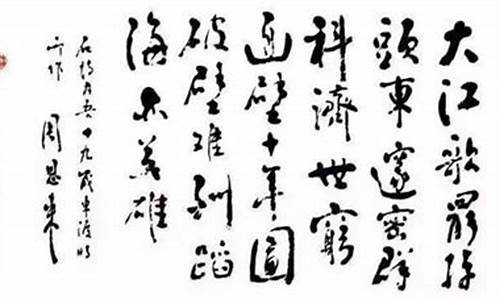 大江歌罷掉
頭東邃密群
科濟世窮
面壁十年圖
破壁難酬蹈
海亦英雄
右詩乃吾十九歲東渡時
作 周恩來